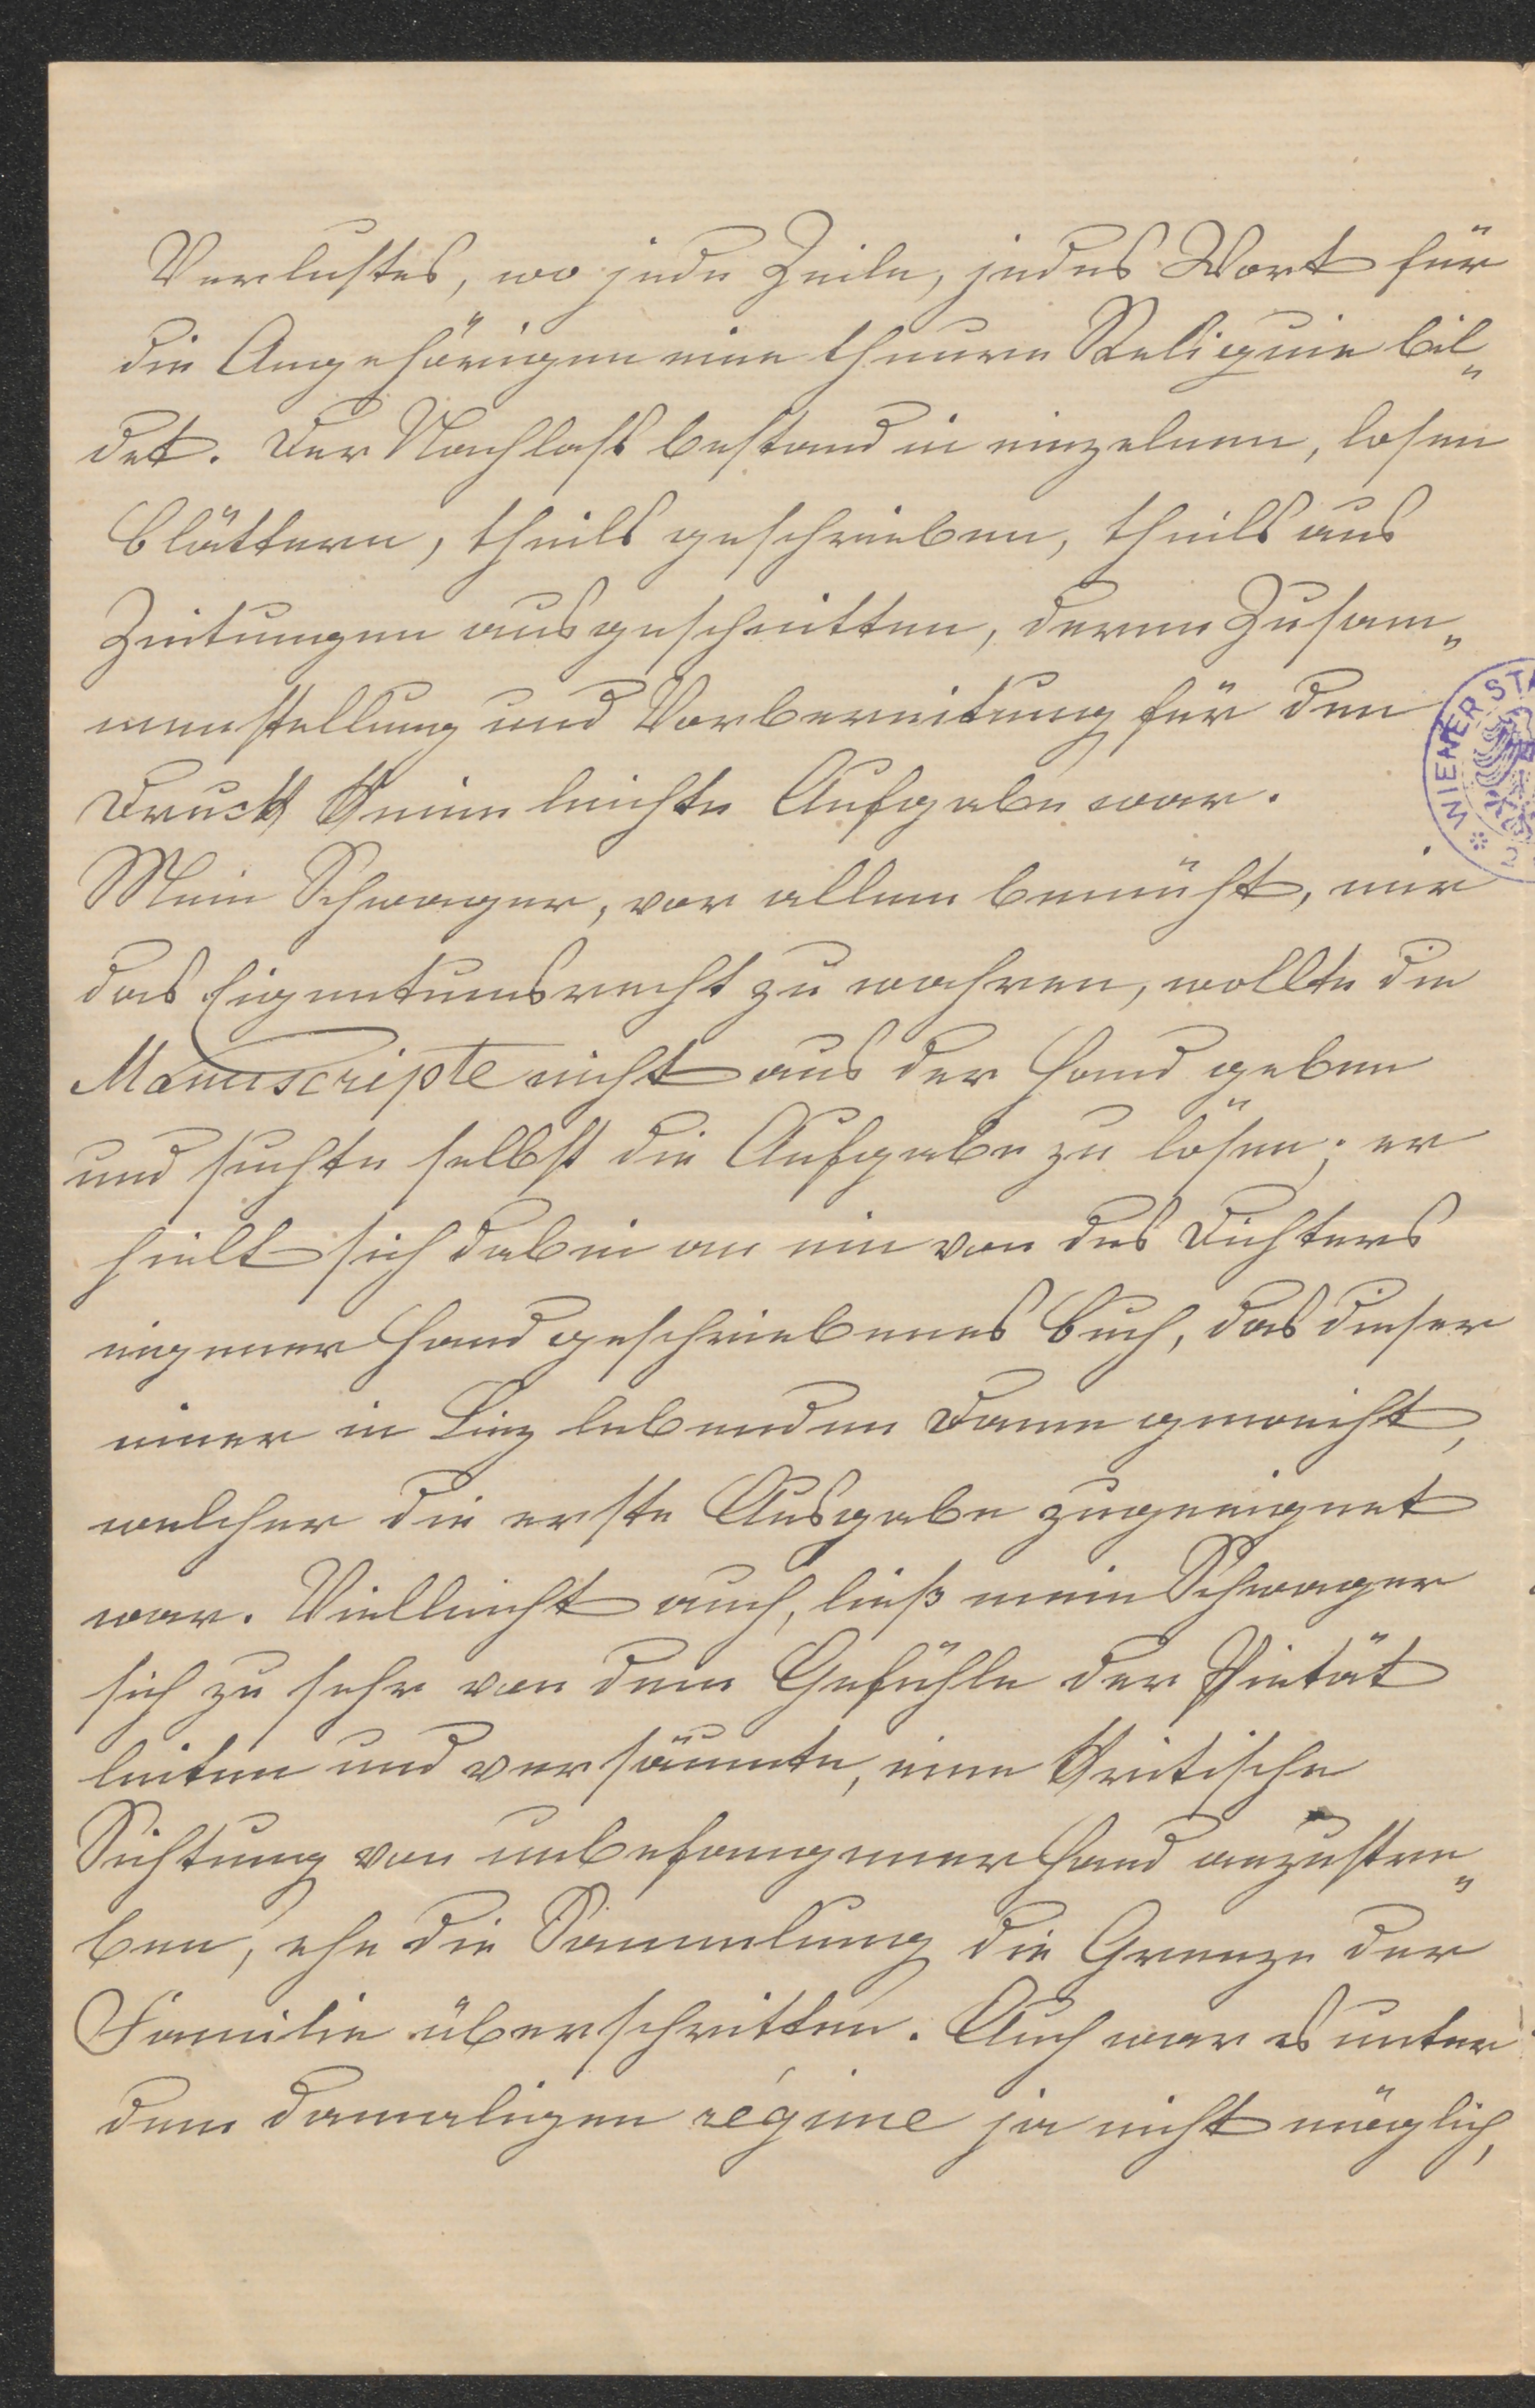 Verlustes, wo jede Zeile, jedes Wort für
die Angehörigen eine theuere Reliquie bil„
det. Der Nachlaß bestand in einzelnen, losen
Blättern, theils geschrieben, theils aus
Zeitungen ausgeschnitten, deren Zusam„
menstellung und Vorbereitung für den
Druck keine leichte Aufgabe war.
Mein Schwager, vor allem bemüht, mir
das Eigentumsrecht zu wahren, wollte die
Manuscripte nicht aus der Hand geben
und suchte selbst die Aufgabe zu lösen; er
hielt sich dabei an ein von des Dichters
eigener Hand geschriebenes Buch, das dieser
einer in Linz lebenden Dame geweiht,
welcher die erste Ausgabe zugeeignet
war. Vielleicht auch, ließ mein Schwager
sich zu sehr von dem Gefühle der Pietät
leiten und versäumte, eine kritische
Sichtung von unbefangener Hand anzustre„
ben, ehe die Sammlung die Grenze der
Familie überschritten. Auch war es unter
dem damaligen régime ja nicht möglich,
WIENER STA